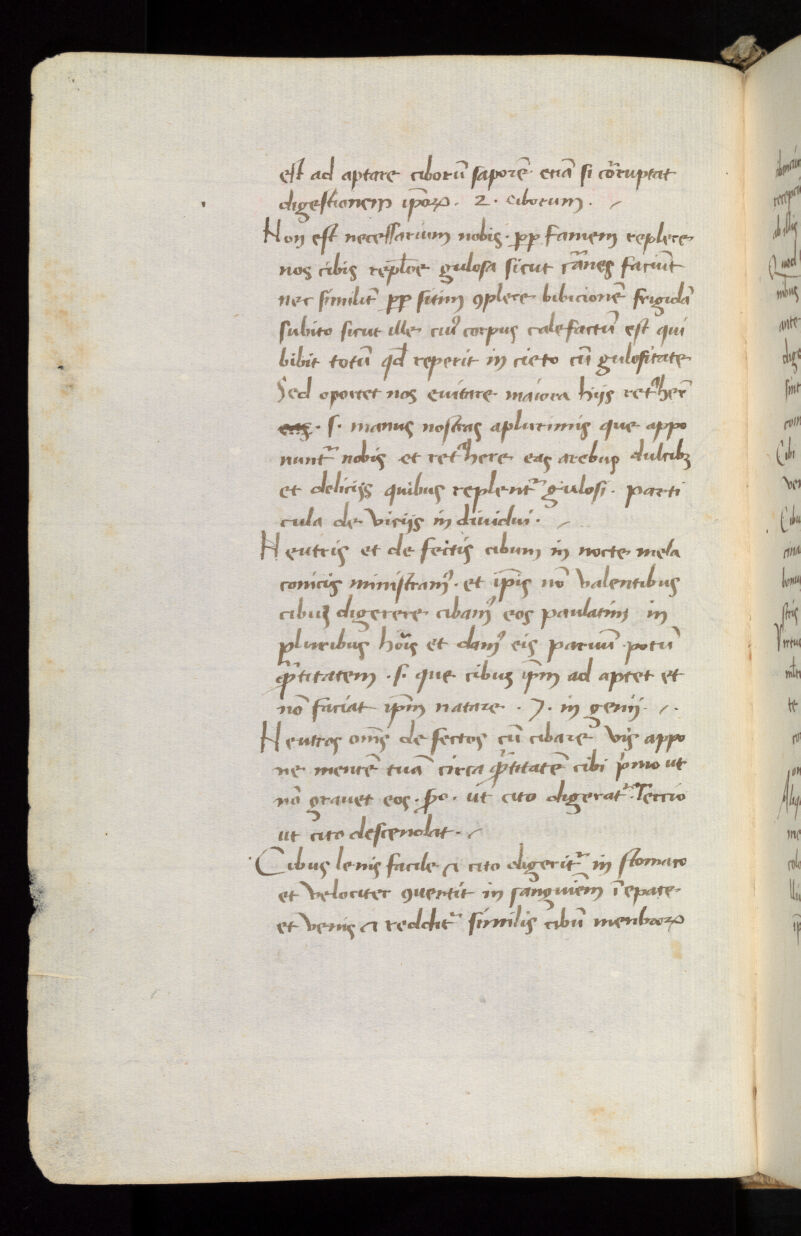 est ad aptare ciborū saporē etiā si cōrruptat
digestionem ipōꝝ . 2 . ciborum .
Non est necessarium nobis . ꝓp famem replere
nos cibis replōe gulosa sicut cānes faciūt
nec similit̄ ꝓp sitim ꝯplere bibicionē frigidā
subito sicut ille cuiꝰ corpus calefactū est qui
bibit totū qd̄ reperit in cieto cū gulositate
Sed oportet nos euitare maiora hijs retͣherē
eas . s . manus nostras aplurimis que appo
nunt᷑ nobis et retͣhere eas arebuꝫ dulcibꝫ
et delicijs quibus replent᷑ gulosi . parti
cula de vicijs in diuidui .
Neutris et de fectis cibum in nocte mela
conicis ministramꝰ . et ip̄is nō valentibus
cibuꝫ digerere cibamꝰ eos paulatim in
pluribus hōis et damꝰ eis paruū potū
qͣntitatem . s . que cibuꝫ ip̄m ad aptet et
nō faciat ip̄m natare . 7 . in genij .
Neutros om̄s de fectos cū cibare vis appo
ne mentē tuā circa qͣntitatē cibi pͥmo ut
nō grauet eos . sͦo . ut cito digerat᷑ . Tercio
ut cito descendat .
Cibus lenis facile ⁊ cito digerit᷑ in stomaco
et velociter ꝯuertit in sanguinem ī epate
et venis ⁊ reddit᷑ similis cibū menbroꝝ